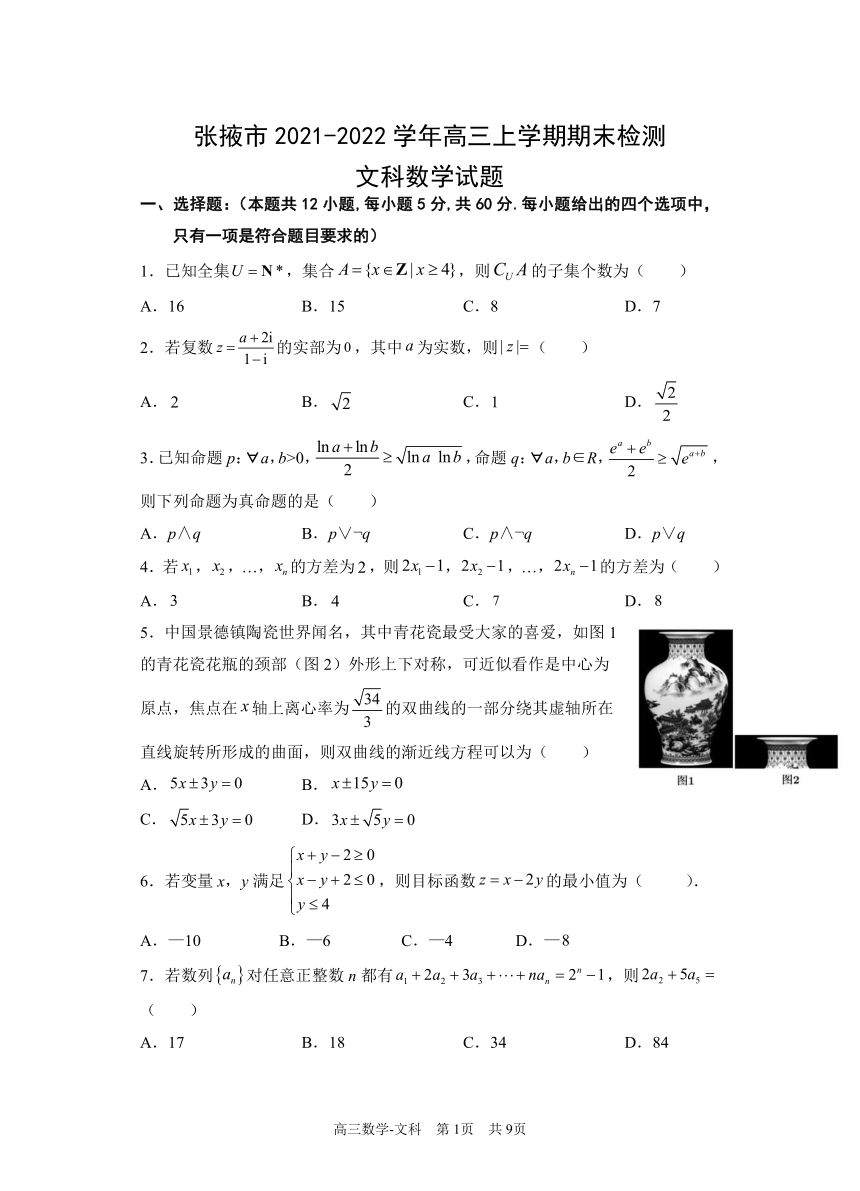 张掖市 2021-2022 学年高三上学期期末检测
文科数学试题
一、选择题:(本题共 12 小题,每小题 5 分,共 60 分.每小题给出的四个选项中,
只有一项是符合题目要求的)
1．已知全集U = N*，集合 A = {x∈Z | x ≥ 4}，则 C_U A 的子集个数为（　　）
A．16 B．15 C．8 D．7
2．若复数 z = (a+2i)/(1−i) 的实部为 0，其中 a 为实数，则 | z |=（　　）
A．2 B．√2 C．1 D．√2/2
3.已知命题 p:∀a,b>0, (ln a + ln b)/2 ≥ √(ln a ln b) ,命题 q:∀a,b∈R, (e^a + e^b)/2 ≥ √(e^(a+b)) ，
则下列命题为真命题的是（　　）
A．p∧q B．p∨¬q C．p∧¬q D．p∨q
4．若 x₁，x₂，…，xₙ 的方差为 2，则 2x₁−1，2x₂−1，…，2xₙ−1 的方差为（　　）
A．3 B．4 C．7 D．8
5．中国景德镇陶瓷世界闻名，其中青花瓷最受大家的喜爱，如图 1
的青花瓷花瓶的颈部（图 2）外形上下对称，可近似看作是中心为
原点，焦点在 x 轴上离心率为 √34/3 的双曲线的一部分绕其虚轴所在
直线旋转所形成的曲面，则双曲线的渐近线方程可以为（　　）
A．5x±3y=0 B．x±15y=0
C．√5x±3y=0 D．3x±√5y=0
图1 图2
6．若变量 x，y 满足 {x+y−2≥0
x−y+2≤0
y≤4 ，则目标函数 z = x−2y 的最小值为（　　）．
A．—10 B．—6 C．—4 D．—8
7．若数列{aₙ}对任意正整数 n 都有 a₁+2a₂+3a₃+⋯+naₙ=2ⁿ−1，则 2a₂+5a₅=
（　　）
A．17 B．18 C．34 D．84
高三数学-文科 第 1页 共 9页